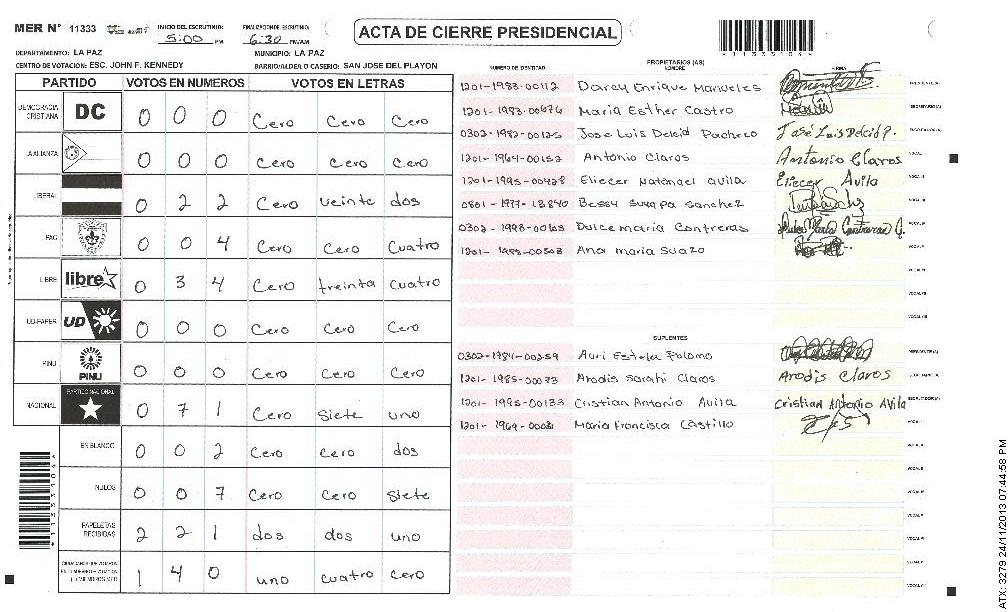 MER N° 11333 INICIO DEL ESCRUTINIO: 5:00 PM FINALIZACION DE ESCRUTINIO: 6:30 PM/AM
ACTA DE CIERRE PRESIDENCIAL
DEPARTAMENTO: LA PAZ MUNICIPIO: LA PAZ
CENTRO DE VOTACION: ESC. JOHN F. KENNEDY BARRIO/ALDEA O CASERIO: SAN JOSE DEL PLAYON
PARTIDO VOTOS EN NUMEROS VOTOS EN LETRAS
DEMOCRACIA CRISTIANA DC 0 0 0 Cero Cero Cero
LA ALIANZA 0 0 0 Cero Cero Cero
LIBERAL 0 2 2 Cero veinte dos
PAC 0 0 4 Cero Cero Cuatro
LIBRE libre 0 3 4 Cero treinta cuatro
UD-FAPER UD 0 0 0 Cero Cero Cero
PINU PINU 0 0 0 Cero Cero Cero
NACIONAL PARTIDO NACIONAL 0 7 1 Cero Siete uno
EN BLANCO 0 0 2 Cero Cero dos
NULOS 0 0 7 Cero Cero Siete
PAPELETAS RECIBIDAS 2 2 1 dos dos uno
1 4 0 uno cuatro cero
NUMERO DE IDENTIDAD PROPIETARIOS (AS) NOMBRE FIRMA
1201-1983-00112 Darcy Enrique Manueles PRESIDENTE(A)
1201-1983-00676 Maria Esther Castro SECRETARIO(A)
0302-1982-00125 Jose Luis Delcid Pacheco José Luis Delcid P. ESCRUTADOR(A)
1201-1964-00152 Antonio Claros Antonio Claros VOCAL I
1201-1995-00428 Eliecer Natanael avila Eliecer Avila VOCAL II
0801-1977-13840 Bessy Suyapa Sanchez VOCAL III
0302-1998-00168 Dulce maria Contreras Dulce Maria Contreras G. VOCAL IV
1201-1988-00303 Ana maria Suazo VOCAL V
VOCAL VI
VOCAL VII
VOCAL VIII
SUPLENTES
0302-1984-00259 Auri Estela Palomo PRESIDENTE(A)
1201-1985-00073 Arodis Sarahi Claros Arodis Claros SECRETARIO(A)
1201-1995-00133 Cristian Antonio Avila Cristian Antonio Avila ESCRUTADOR(A)
1201-1969-00081 Maria Francisca Castillo VOCAL I
VOCAL II
VOCAL III
VOCAL IV
VOCAL V
VOCAL VI
VOCAL VII
VOCAL VIII
11333104
ATX: 3279 24/11/2013 07:44:58 PM